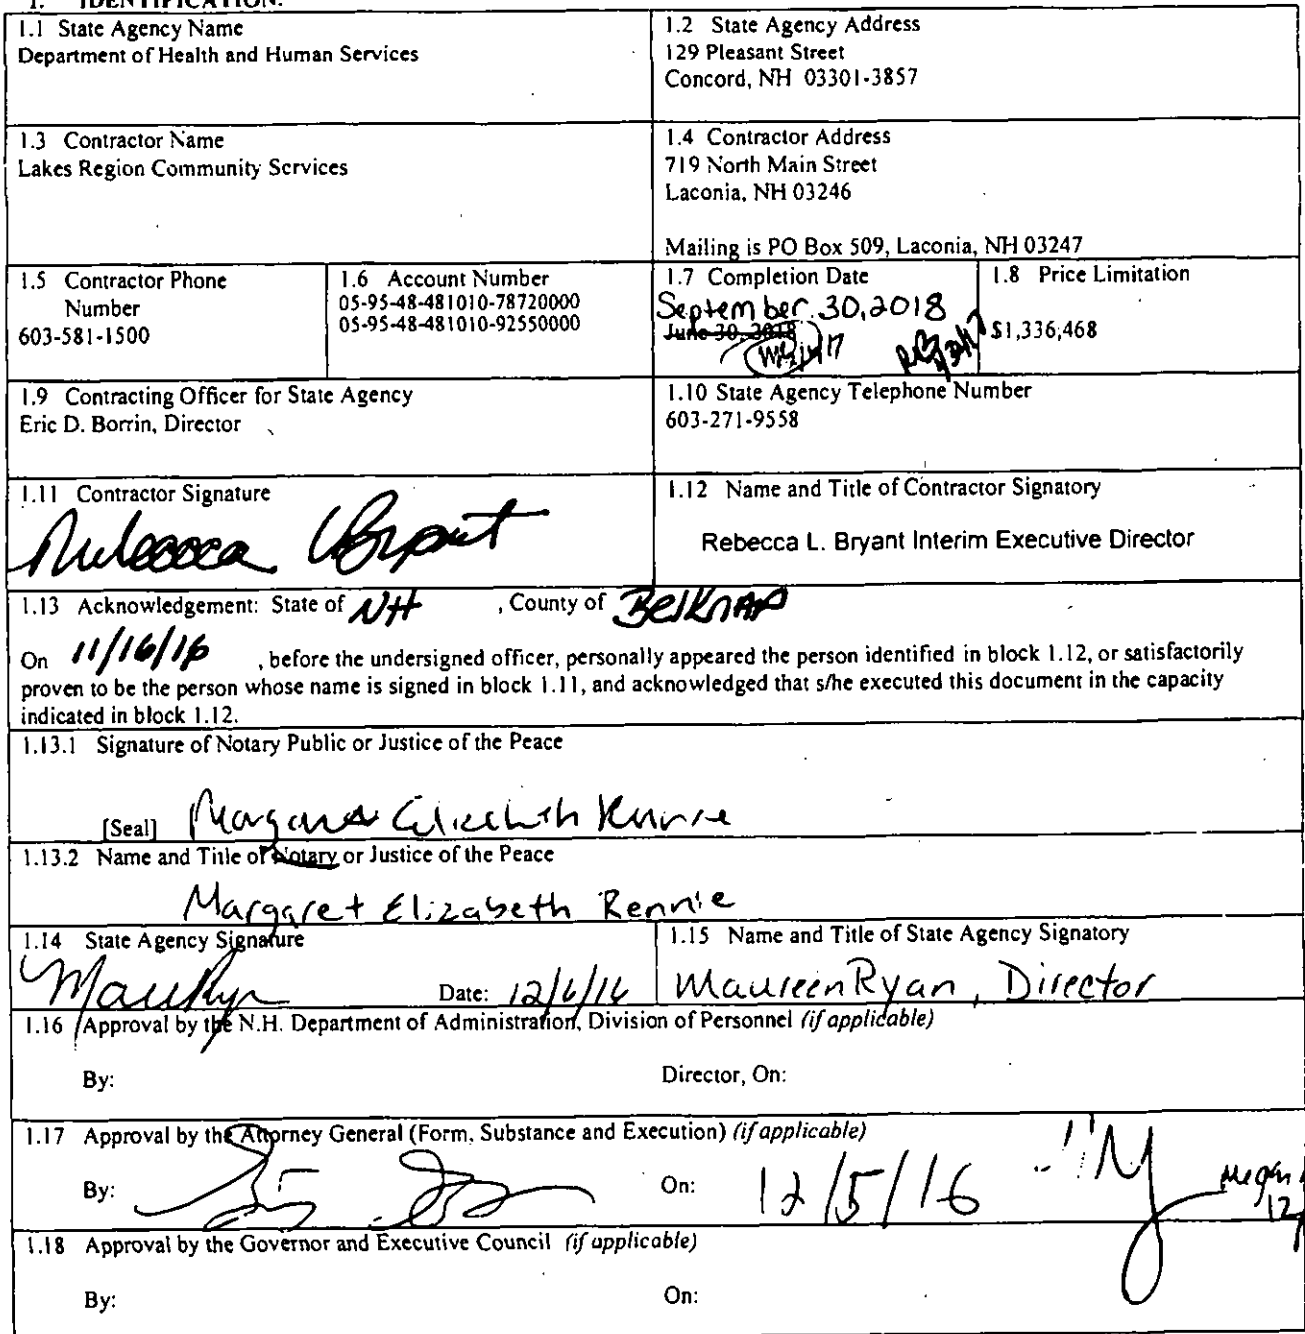 1. IDENTIFICATION.
1.1 State Agency Name
Department of Health and Human Services
1.2 State Agency Address
129 Pleasant Street
Concord, NH 03301-3857
1.3 Contractor Name
Lakes Region Community Services
1.4 Contractor Address
719 North Main Street
Laconia, NH 03246
Mailing is PO Box 509, Laconia, NH 03247
1.5 Contractor Phone
Number
603-581-1500
1.6 Account Number
05-95-48-481010-78720000
05-95-48-481010-92550000
1.7 Completion Date
September 30, 2018
June 30, 2018
1.8 Price Limitation
$1,336,468
1.9 Contracting Officer for State Agency
Eric D. Borrin, Director
1.10 State Agency Telephone Number
603-271-9558
1.11 Contractor Signature
Rebecca L Bryant
1.12 Name and Title of Contractor Signatory
Rebecca L. Bryant Interim Executive Director
1.13 Acknowledgement: State of NH , County of Belknap
On 11/16/16 , before the undersigned officer, personally appeared the person identified in block 1.12, or satisfactorily
proven to be the person whose name is signed in block 1.11, and acknowledged that s/he executed this document in the capacity
indicated in block 1.12.
1.13.1 Signature of Notary Public or Justice of the Peace
[Seal] Margaret Elizabeth Rennie
1.13.2 Name and Title of Notary or Justice of the Peace
Margaret Elizabeth Rennie
1.14 State Agency Signature
Date: 12/6/16
1.15 Name and Title of State Agency Signatory
Maureen Ryan, Director
1.16 Approval by the N.H. Department of Administration, Division of Personnel (if applicable)
By: Director, On:
1.17 Approval by the Attorney General (Form, Substance and Execution) (if applicable)
By: On: 12/5/16
Megan
1.18 Approval by the Governor and Executive Council (if applicable)
By: On: